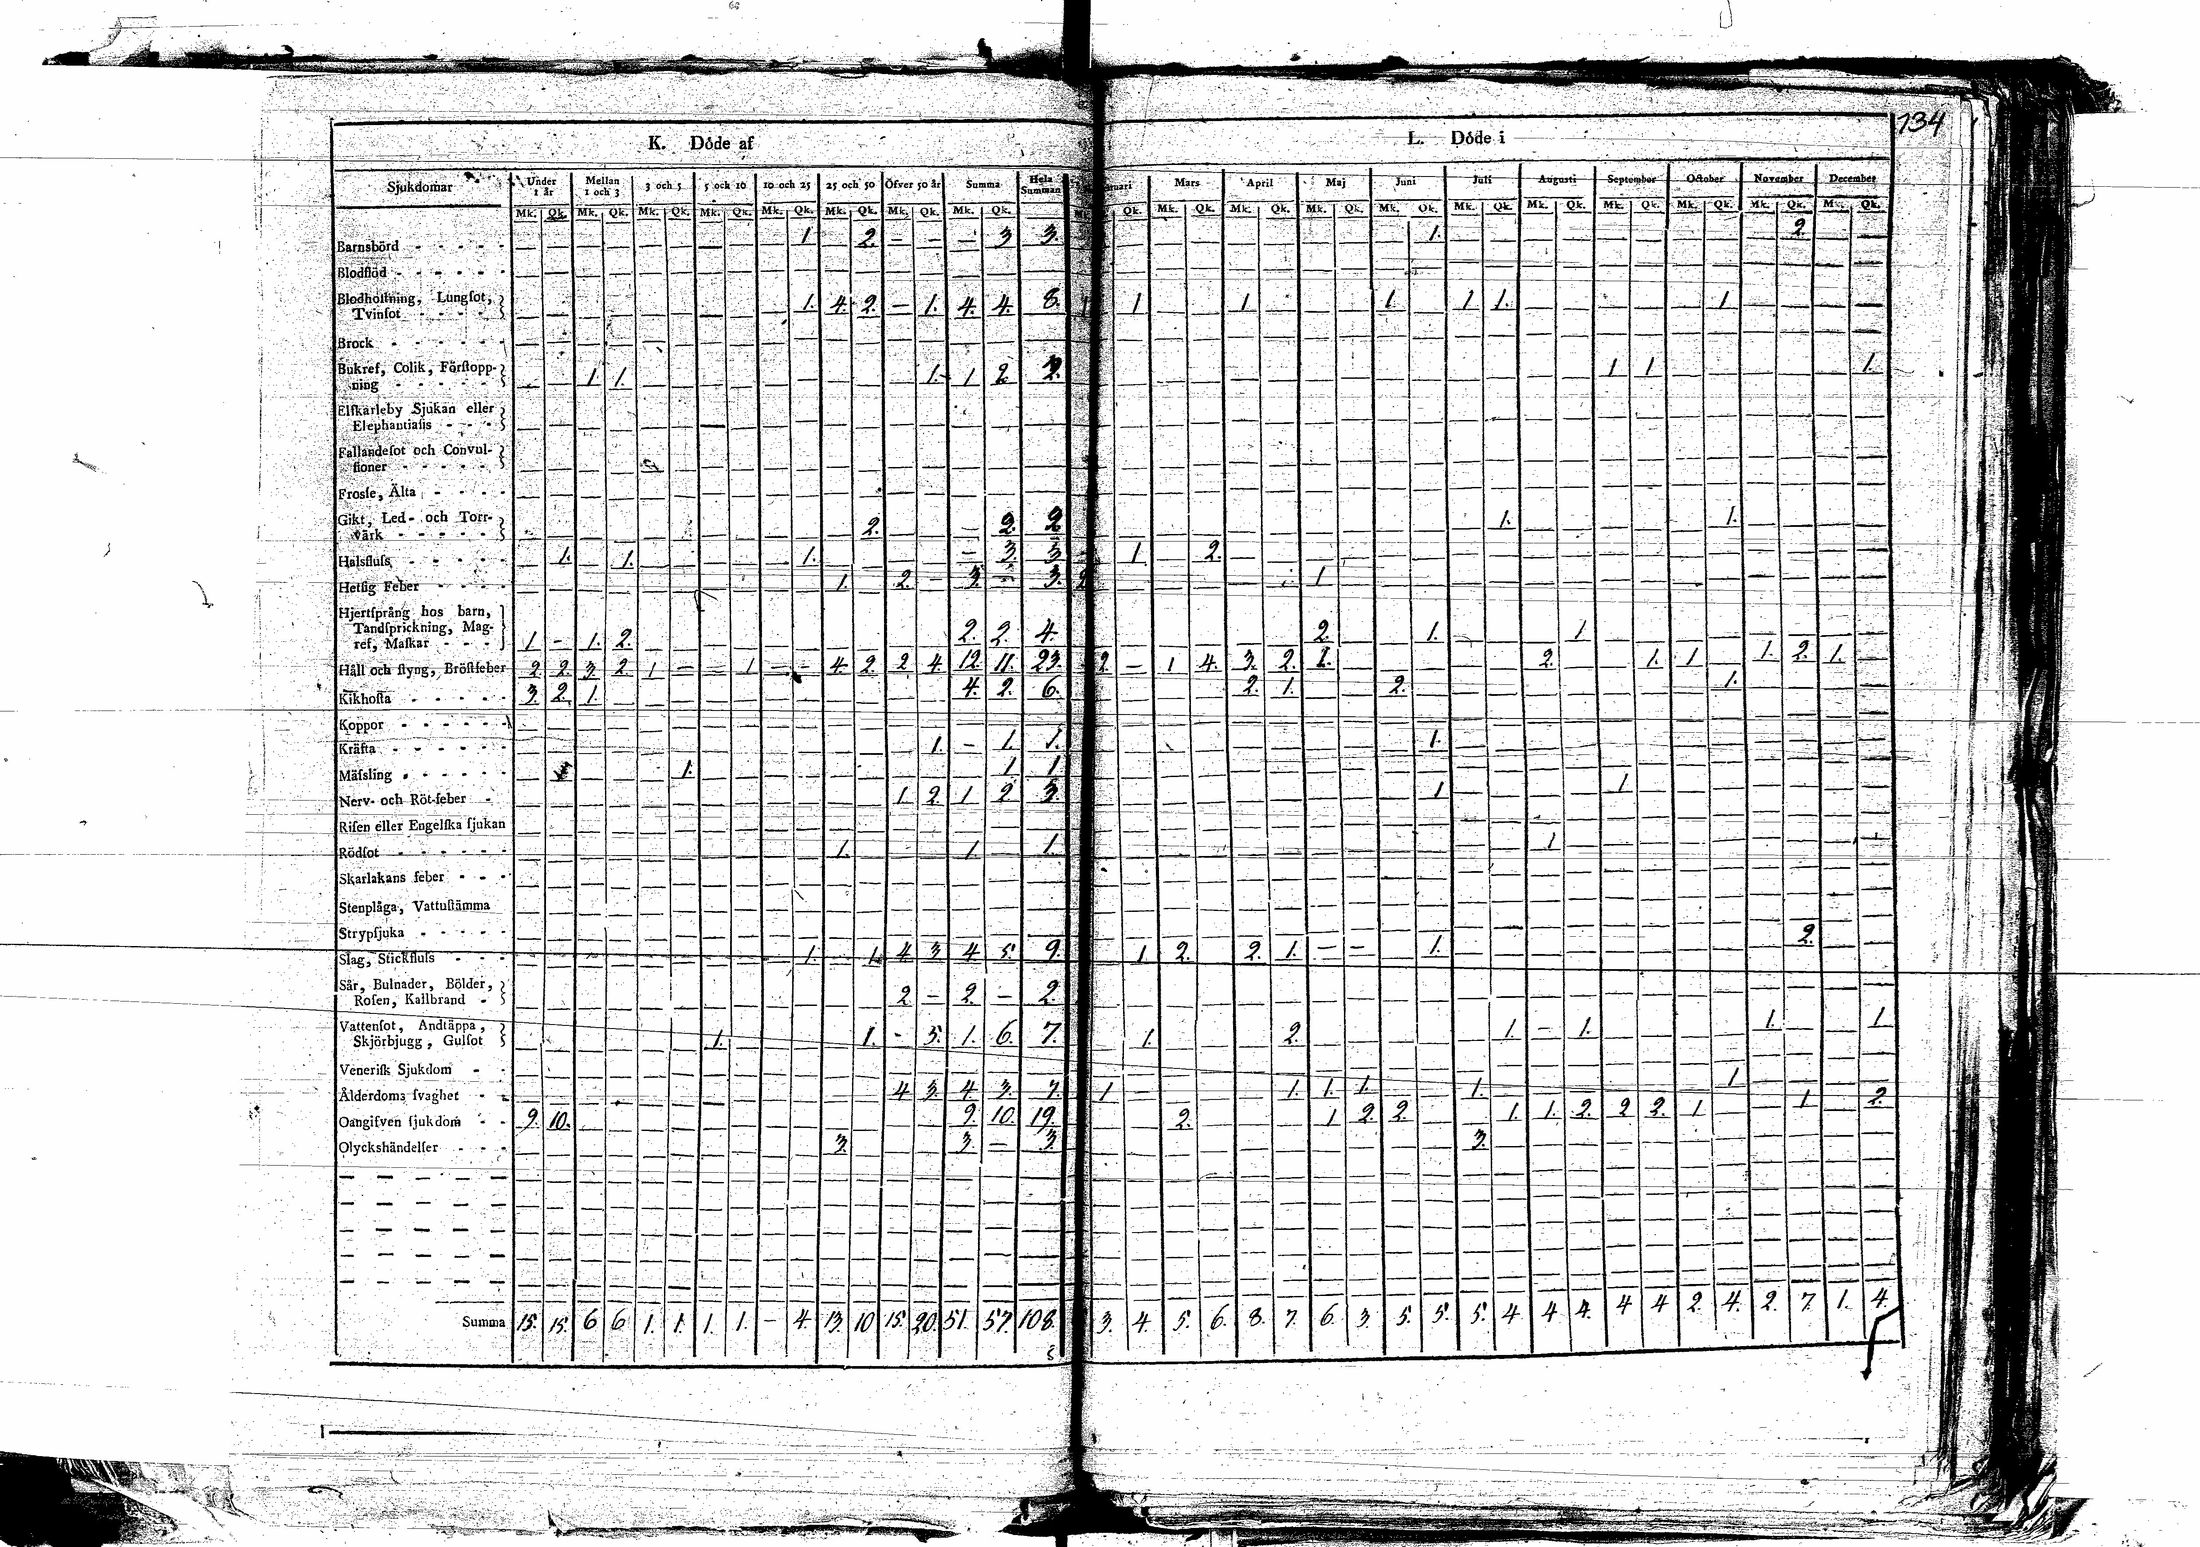 134
K. Döde af
L. Döde i
Sjukdomar Under 1 år Mellan 1 och 3 3 och 5 5 och 10 10 och 25 25 och 50 Öfver 50 år Summa Hela Summan Mars April Maj Juni Juli Augusti September October November December
Mk. Qk. Mk. Qk. Mk. Qk. Mk. Qk. Mk. Qk. Mk. Qk. Mk. Qk. Mk. Qk. Mk. Qk. Mk. Qk. Mk. Qk. Mk. Qk. Mk. Qk. Mk. Qk. Mk. Qk. Mk. Qk. Mk. Qk. Mk. Qk. Mk. Qk.
Barnsbörd 1. 2. — — — 3 3. 1. 2.
Blodflöd
Blodhoſtning, Lungſot,
Tvinſot 1. 4. 2. — 1. 4. 4. 8. 1 1 1 1 1. 1
Brock
Bukref, Colik, Förſtopp-
ning 1. 1. 1. 1 2 1 1 1.
Elſkarleby Sjukan eller
Elephantiaſis
Fallandeſot och Convul-
ſioner
Frosſe, Älta
Gikt, Led- och Torr-
värk 2. — 2. 2 1. 1.
Halsfluſs 1. 1. 1. — 3. 3 1. 2.
Hetſig Feber 1. 2. — 3. — 3. 1
Hjertſprång hos barn,
Tandſprickning, Mag-
ref, Maſkar 1 — 1. 2. 2. 2. 4. 2. 1. 1
Håll och ſtyng, Bröſtfeber 2. 2. 3. 2. 1 — — 1 — — 4. 2. 2. 4. 12. 11. 23. 2. — 1 4. 3. 2. 1. 2. 1. 1 1. 2. 1.
Kikhoſta 3. 2. 1 4. 2. 6. 2. 1. 2. 1.
Koppor
Kräfta 1. — 1. 1. 1.
Mäſsling 1. 1 1
Nerv- och Röt-feber 1. 2. 1 2 3. 1 1
Riſen eller Engelſka ſjukan
Rödſot 1. 1. 1. 1
Skarlakans feber
Stenplåga, Vattuſtämma
Strypſjuka
Slag, Stickfluſs 1. 1. 4. 3. 4 5. 9. 1 2. 2. 1. — — 1. 2.
Sår, Bulnader, Bölder,
Roſen, Kallbrand 2 — 2. — 2.
Vattenſot, Andtäppa,
Skjörbjugg, Gulſot 1. 1. — 5. 1. 6. 7. 1. 2. 1. — 1. 1. 1
Veneriſk Sjukdom
Ålderdoms ſvaghet 4 3. 4. 3. 7. 1 1. 1. 1. 1. 1
Oangifven ſjukdom 9. 10. 9. 10. 19. 2. 1 2. 2. 1. 1. 2. 2 2. 1 1 2.
Olyckshändelſer 3. 3. — 3. 3.
Summa 15. 15. 6 6 1. 1. 1. 1. — 4. 13. 10 15. 20. 51. 57. 108. 3. 4. 5. 6. 8. 7. 6. 3. 5. 5. 5. 4 4 4. 4 4 2. 4. 2. 7. 1. 4.